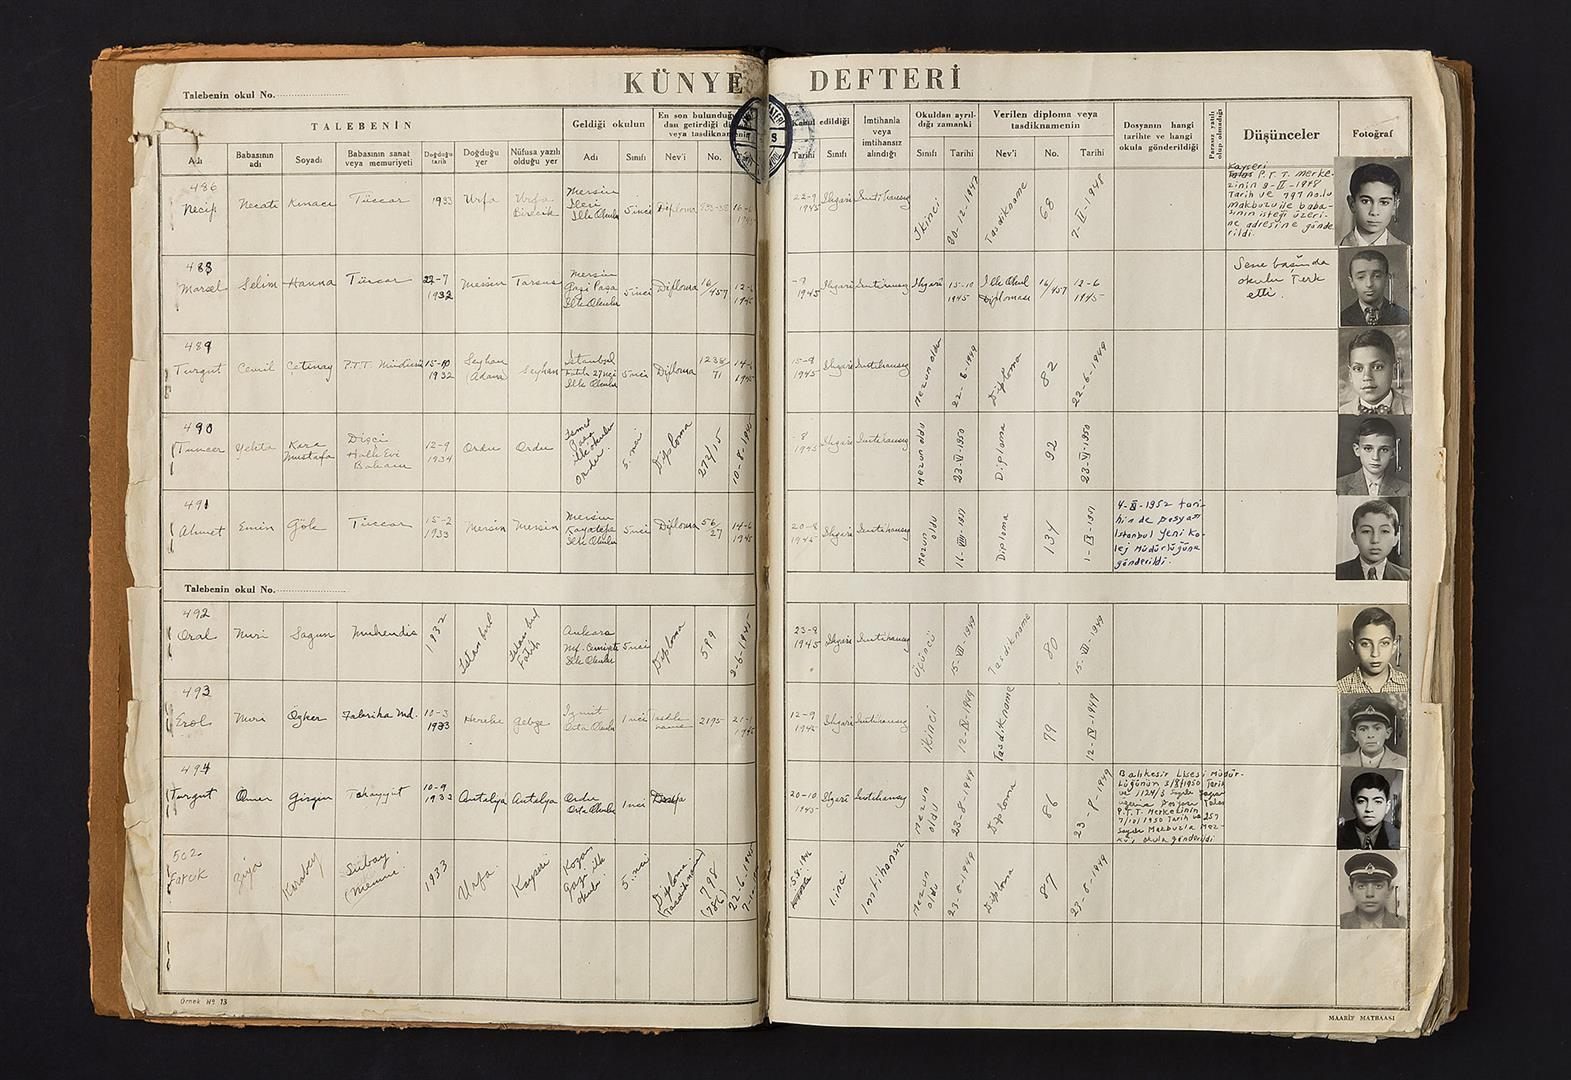 KÜNYE DEFTERİ
Talebenin okul No.
TALEBENİN
Geldiği okulun
En son bulunduğu
dan getirdiği
veya tasdiknamenin
Adı
Babasının adı
Soyadı
Babasının sanat veya memuriyeti
Doğduğu tarih
Doğduğu yer
Nüfusa yazılı olduğu yer
Adı
Sınıfı
Nev'i
No.
Kabul edildiği
Tarihi
Sınıfı
İmtihanla veya imtihansız alındığı
Okuldan ayrıldığı zamanki
Sınıfı
Tarihi
Verilen diploma veya tasdiknamenin
Nev'i
No.
Tarihi
Dosyanın hangi tarihte ve hangi okula gönderildiği
Parasız yatılı olup olmadığı
Düşünceler
Fotoğraf
486 Necip Necati Kınacı Tüccar 1933 Urfa Urfa Birecik Mersin İleri İlk Okulu 5inci Diploma
İkinci Tasdikname 68 7-II-1948
Kayseri
P.T.T. Merke-
zinin 9-II-1948
Tarih ve 797 No.lu
makbuzu ile baba-
sının isteği üzeri-
ne adresine gönde
rildi.
488 Marsel Selim Hanna Tüccar 22-7 1932 Mersin Tarsus Mersin Gazi Paşa İlk Okulu 5inci Diploma 16/457 12-6 1945
1945 İhzari İmtihansız İhzari 15-10 1945 İlk Okul Diploması 16/457 12-6 1945
Sene başında
okulu Terk
etti.
489 Turgut Cemil Çetinay P.T.T. Müdürü 15-10 1932 Seyhan (Adana) Seyhan İstanbul Fatih 27nci İlk Okulu 5inci Diploma 1238/71
15-9 1945 İhzari İmtihansız Mezun oldu 22-6-1949 Diploma 82 22-6-1949
490 Tuncer Yekta Kara Mustafa Dişçi Halk Evi Başkanı 12-9 1934 Ordu Ordu İsmet Paşa ilk okulu Ordu. 5.nci Diploma 272/15 10-8-1945
1945 İhzari İmtihansız Mezun oldu 23-VI-1950 Diploma 92 23-VI-1950
491 Ahmet Emin Gök Tüccar 15-2 1933 Mersin Mersin Mersin Kayatepe İlk Okulu 5inci Diploma 56/27 14-6 1945
20-8 1945 İhzari İmtihansız Mezun oldu Diploma 134
4-XI-1952 tari-
hinde Dosyası
İstanbul Yeni Ko-
lej Müdürlüğüne
gönderildi.
Talebenin okul No.
492 Oral Nuri Sagun Mühendis 1932 İstanbul İstanbul Fatih Ankara İlk Okulu 5inci Diploma 519
23-8 1945 İhzari İmtihansız Üçüncü 15-VII-1949 Tasdikname 80 15-VII-1949
493 Erol Nuri Özker Fabrika Md. 10-3 1933 Hereke Gebze İzmit Orta Okulu 1nci Tasdikname 2195
12-9 1945 İhzari İmtihansız İkinci 12-IV-1949 Tasdikname 79 12-IV-1949
494 Turgut Ömer Girgin 10-9 1933 Antalya Antalya Ordu Orta Okulu 1nci
20-10 1945 İhzari İmtihansız Mezun oldu 23-8-1949 Diploma 86 23-8-1949
Balıkesir Lisesi Müdür-
lüğünün Tarih
ve 1124/3 Sayılı yazısı
üzerine Dosyası Talas
P.T.T. Merkezinin
7/10/1950 Tarih ve 257
Sayılı Makbuzla Mez-
kûr okula gönderildi
502 Faruk Ziya Karabey Sübay (Memur) 1933 Urfa Kayseri Kozan Gazi ilk okulu 5.nci Diploma (Tasdikname) 798 (786)
1.inci İmtihansız Mezun oldu 23-8-1949 Diploma 87 23-8-1949
Örnek No 13
MAARİF MATBAASI